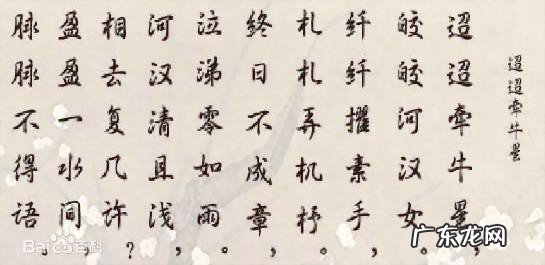 迢迢牵牛星
迢迢牵牛星，
皎皎河汉女。
纤纤擢素手，
札札弄机杼。
终日不成章，
泣涕零如雨。
河汉清且浅，
相去复几许？
盈盈一水间，
脉脉不得语。
Bai百科
广东龙网